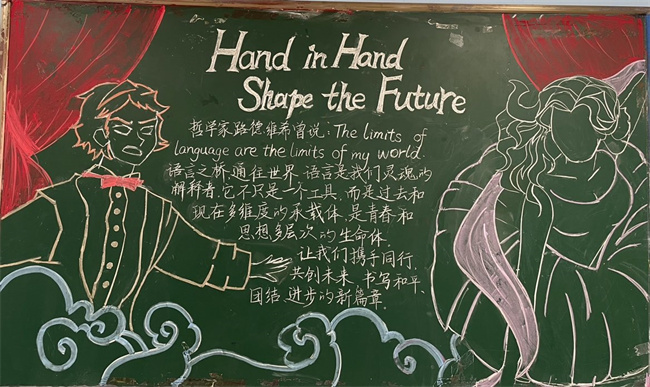 Hand in Hand
Shape the Future
哲学家路德维希曾说：The limits of
language are the limits of my world.
语言之桥，通往世界，语言是我们灵魂的
解释者，它不只是一个工具，而是过去和
现在多维度的承载体，是青春和
思想多层次的生命体，
让我们携手同行，
共创未来，书写和平、
团结、进步的新篇章。